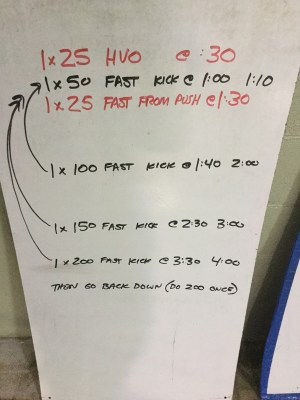 1 x 25 HVO @ :30
1 x 50 FAST KICK @ 1:00 1:10
1 x 25 FAST FROM PUSH @ 1:30
1 x 100 FAST KICK @ 1:40 2:00
1 x 150 FAST KICK @ 2:30 3:00
1 x 200 FAST KICK @ 3:30 4:00
THEN GO BACK DOWN (DO 200 ONCE)